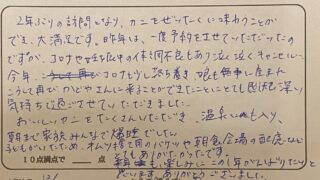 2年ぶりの訪問となり、カニをぜいたくに味わうことが
でき、大満足です。昨年は、一度予約をさせていただいたの
ですが、コロナや妊娠中の体調不良もあり泣く泣くキャンセル…
今年、コロナも少し落ち着き、娘も無事に産まれ
こうして再びかどやさんに来ることができたことにとても感慨深い
気持ちで過ごさせていただきました。
おいしいカニをたくさんいただき、温泉にも入り、
朝まで家族みんなで爆睡でした。
子どもがいたため、オムツ捨て用のバケツや朝食会場の配慮など
とてもありがたかったです。
来年も楽しみに、この1年がんばりたいと
思います。ありがとうございました。
10点満点で 点